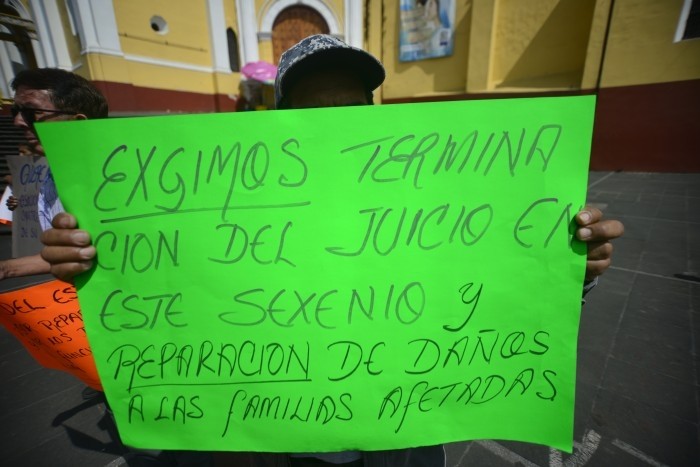 EXGIMOS TERMINA
CION DEL JUICIO EN
ESTE SEXENIO y
REPARACION DE DAÑOS
A LAS FAMILIAS AFETADAS
DEL
REPAR